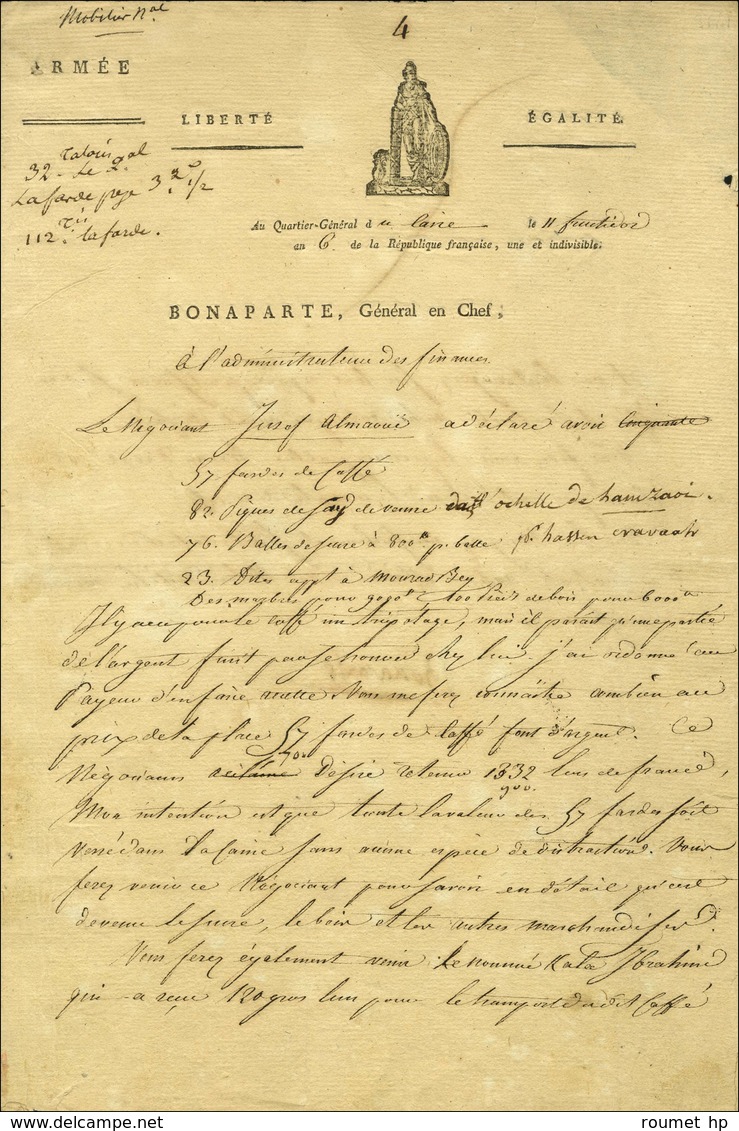 Mobilier Nal
4
ARMÉE
LIBERTÉ
ÉGALITÉ.
32 - Le qal
La farde pese 3 q 1/2
112 la farde.
Au Quartier-Général du Caire le 11 fructidor
an 6. de la République française, une et indivisible.
BONAPARTE, Général en Chef,
à l'administrateur des finances
Le Négociant Jusef Almaoui a déclaré avoir Cinquante
57 fardes de Caffé
82. Piques de de venise l'ochelle de hamzaoi.
76. Balles de sucre à 800 p. balle hassen
23. Dites appt à Mourad Bey
Des marbres pour 9090 100 Pieds de bois pour 6000
Il y a eu pour le caffé un tripotage, mais il parait qu'une partie
de l'argent finit par se trouver chez lui. j'ai ordonné au
Payeur d'en faire recette. Vous me ferez connaitre combien au
prix de la place 57 fardes de Caffé font d'argent. Ce
700
Négociant réclame Désire retenir 1332 lius de france,
900.
Mon intention est que toute la valeur des 57 fardes soit
versé dans la Caisse sans aucune espèce de distraction. Vous
ferez venir ce Négociant pour savoir en détail qu'est
devenu le sucre, le bois et les autres marchandises.
Vous ferez également venir le nommé Kata Ibrahim
qui a reçu 120 gros lius pour le transport dudit Caffé
roumet hp